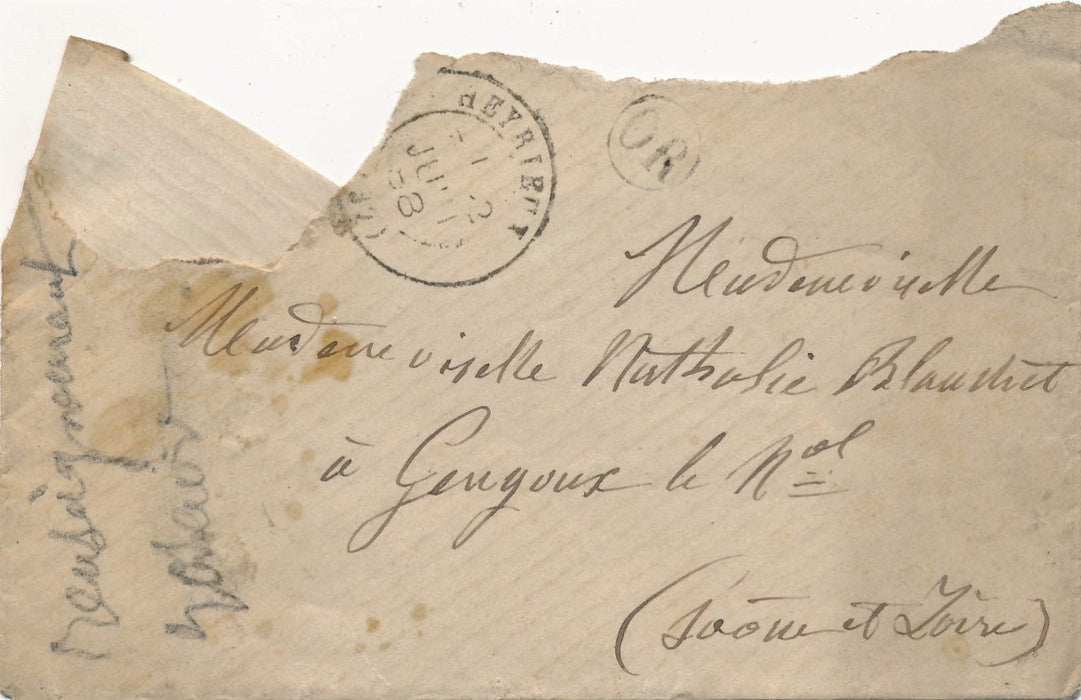 HEYRIEUX
2
JUIL
68
OR
Mademoiselle
Mademoiselle Nathalie Blanchet
à Gengoux le Nal
(Saône et Loire)
renseignement